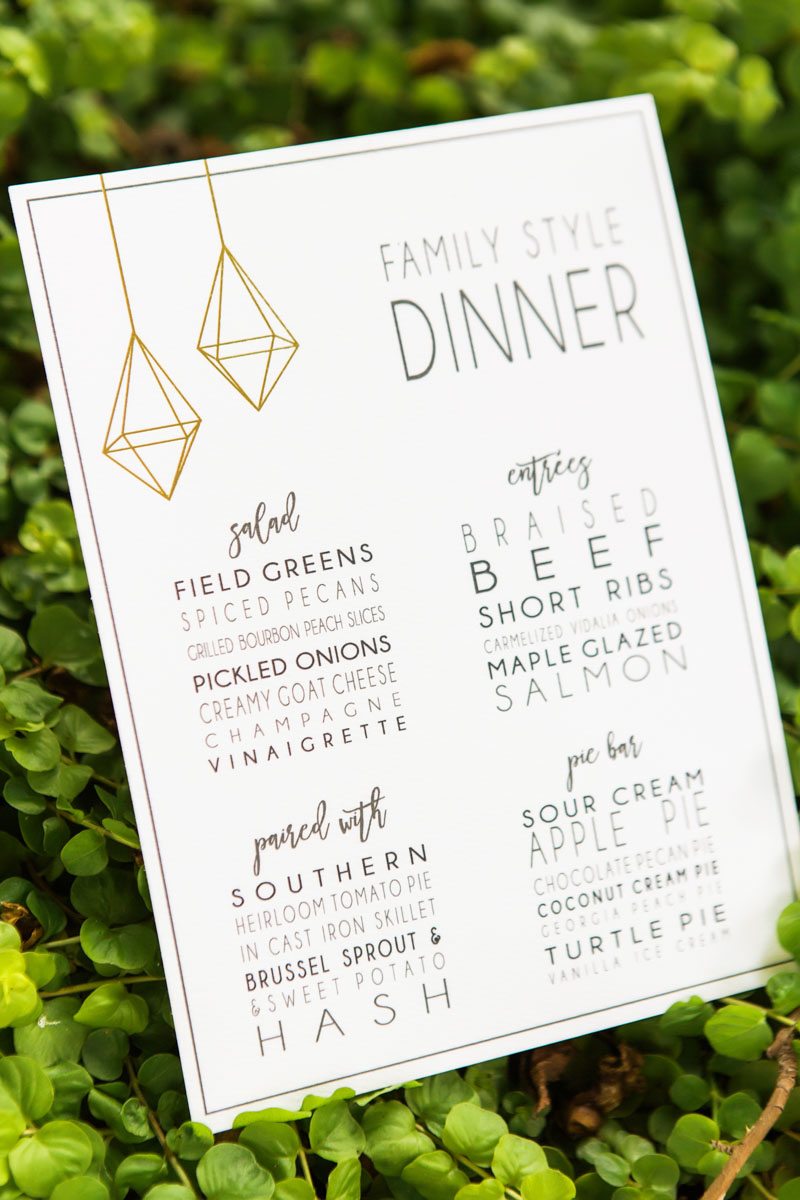 FAMILY STYLE
DINNER
salad
FIELD GREENS
SPICED PECANS
GRILLED BOURBON PEACH SLICES
PICKLED ONIONS
CREAMY GOAT CHEESE
CHAMPAGNE
VINAIGRETTE
paired with
SOUTHERN
HEIRLOOM TOMATO PIE
IN CAST IRON SKILLET
BRUSSEL SPROUT &
& SWEET POTATO
HASH
entrées
BRAISED
BEEF
SHORT RIBS
CARMELIZED VIDALIA ONIONS
MAPLE GLAZED
SALMON
pie bar
SOUR CREAM
APPLE PIE
CHOCOLATE PECAN PIE
COCONUT CREAM PIE
GEORGIA PEACH PIE
TURTLE PIE
VANILLA ICE CREAM